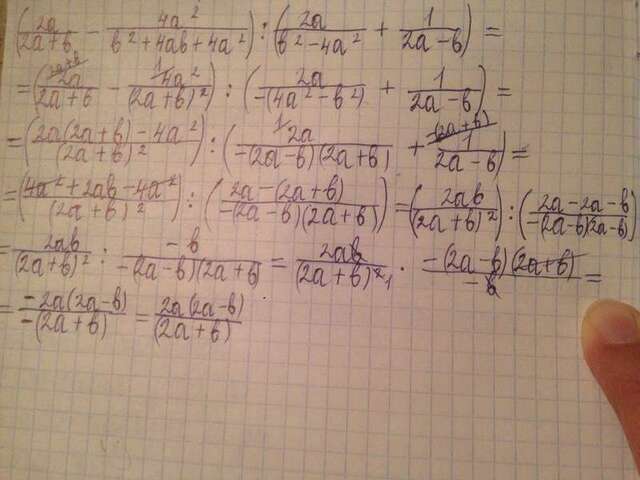 (2a/(2a+b) - 4a²/(b²+4ab+4a²)) : (2a/(b²-4a²) + 1/(2a-b)) =
= (2a/(2a+b) - 4a²/(2a+b)²) : (2a/(-(4a²-b²)) + 1/(2a-b)) =
= ((2a(2a+b)-4a²)/(2a+b)²) : (2a/(-(2a-b)(2a+b)) + 1/(2a-b)) =
= ((4a²+2ab-4a²)/(2a+b)²) : ((2a-(2a+b))/(-(2a-b)(2a+b))) = (2ab/(2a+b)²) : ((2a-2a-b)/(-(2a-b)(2a-b)))
= 2ab/(2a+b)² : -b/(-(2a-b)(2a+b)) = 2ab/(2a+b)² · -(2a-b)(2a+b)/-b =
= -2a(2a-b)/-(2a+b) = 2a(2a-b)/(2a+b)